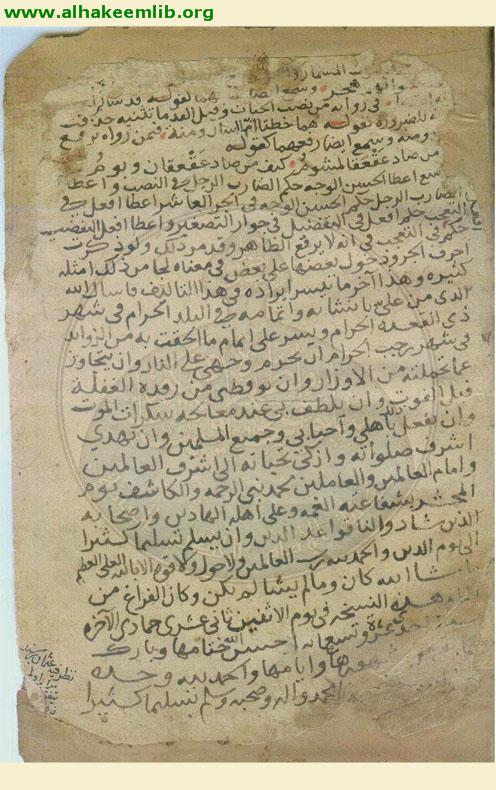 www.alhakeemlib.org
المسمار
وسمع ايضا هما كقوله قد سالم
في رواية من نصب الحيات وقيل القدما تثنيه حذف
للضرورة كقوله هما خطتا اما اسار ومنة فيمن رواه برفع
ومنة وسمع ايضا رفعهما كقوله
من صاد عقعقا لمشوم كيف من صاد عقعقان وبوم
اعطا الحسن الوجه حكم الضارب الرجل في النصب واعطا
الضارب الرجل حكم الحسن الوجه في الجر العاشر اعطا افعل في
التعجب حكم افعل في التفضيل في جواز التصغير واعطا افعل التفضيل
حكم في التعجب في انه لا يرفع الظاهر وقد مر ذلك ولو ذكرت
احرف الجر ودخول بعضها على بعض في معناه لجا من ذلك امثلة
كثيرة وهذا آخر ما تيسر ايراده في هذا التاليف فاسال الله
الذي من علي بانشائه واتمامه في البلد الحرام في شهر
ذي القعدة الحرام ويسر علي اتمام ما الحقت به من الزوايد
في شهر رجب الحرام ان يحرم وجهي على النار وان يتجاوز
عما تحملته من الاوزار وان يوقظني من رقدة الغفلة
قبل الفوت وان يلطف بي عند معالجة سكرات الموت
وان يفعل ذلك باهلي واحبابي وجميع المسلمين وان يهدي
اشرف صلواته وازكى تحياته الى اشرف العالمين
وامام العالمين والعاملين محمد نبي الرحمة والكاشف يوم
المحشر بشفاعته الغمة وعلى اهله الهادين واصحابه
الذين شادوا لنا قواعد الدين وان يسلم تسليما كثيرا
الى يوم الدين والحمد لله رب العالمين ولا حول ولا قوة الا بالله العلي العظيم
ما شا الله كان وما لم يشا لم يكن وكان الفراغ من
هذه النسخة في يوم الاثنين ثاني عشري جمادى الآخرة
وتسعمائة احسن الله ختامها وبارك
وايامها والحمد لله وحده
محمد واله وصحبه وسلم تسليما كثيرا
نظر فيه عثمان